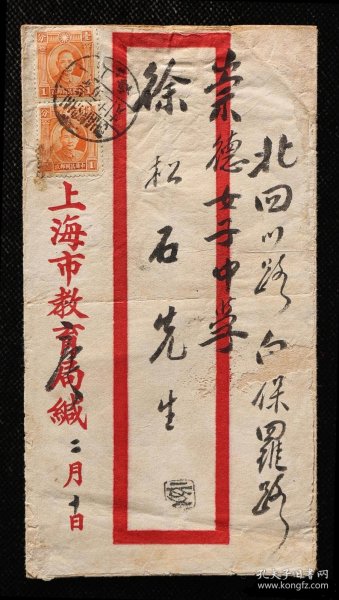 北四川路白保羅路
崇德女子中學
徐松石先生
上海市教育局緘
二月十日
孔夫子旧书网
www.kongfz.com